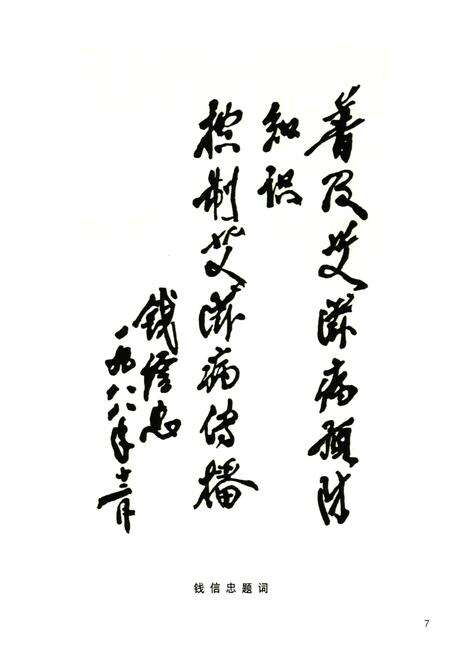 普及艾滋病预防
知识
控制艾滋病传播
钱信忠
一九八八年十二月
钱信忠题词
7